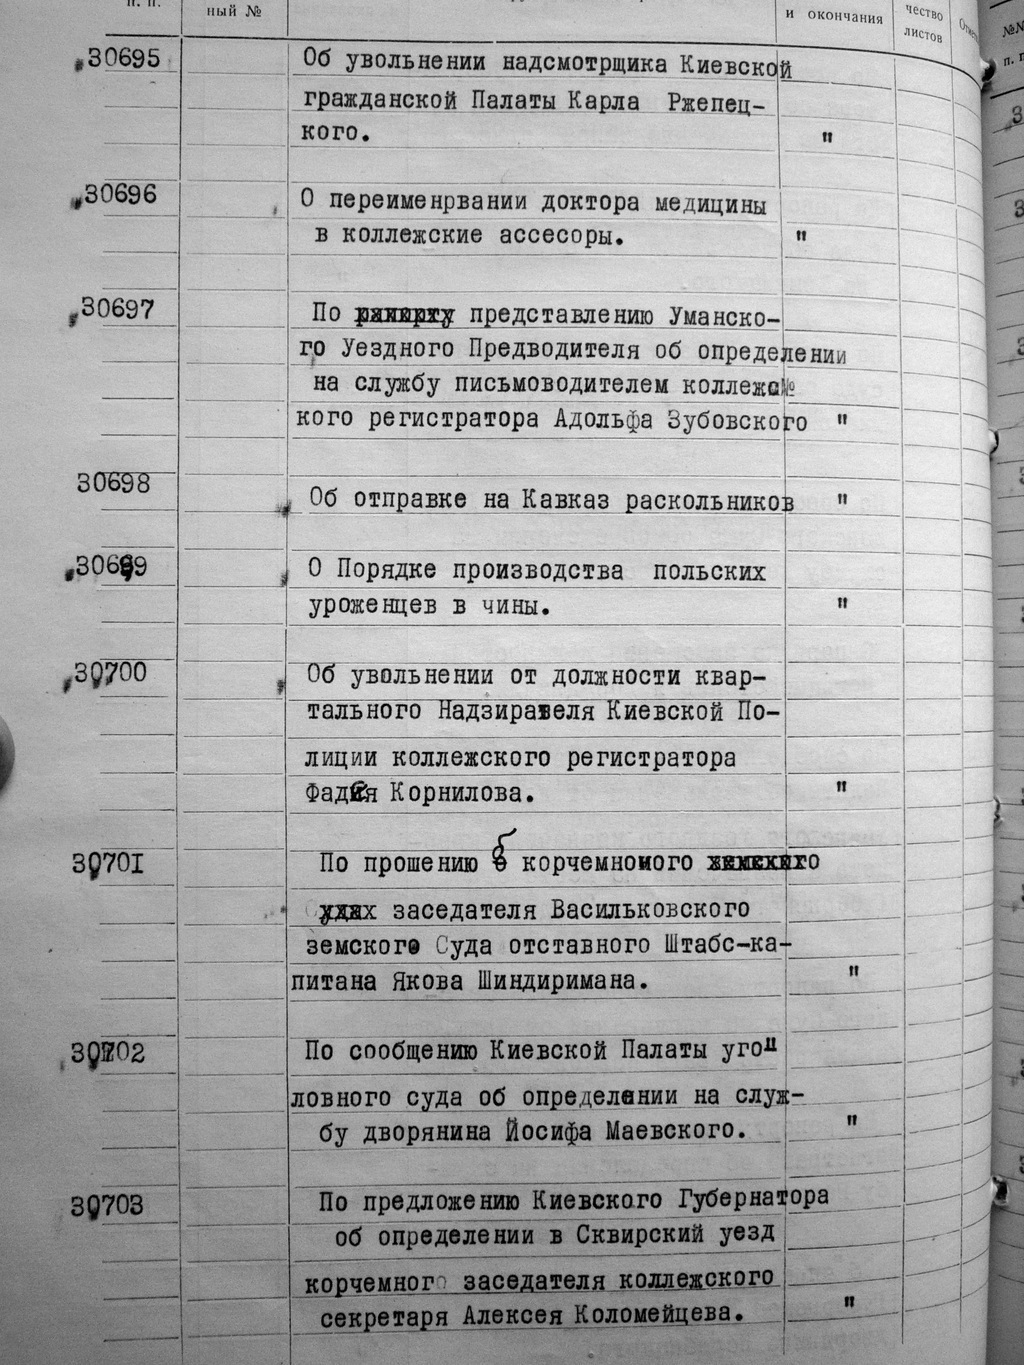 п. п.
ный №
и окончания
чество
листов
№№
30695 Об увольнении надсмотрщика Киевской
гражданской Палаты Карла Ржепец-
кого. "
30696 О переименрвании доктора медицины
в коллежские ассесоры. "
30697 По представлению Уманско-
го Уездного Предводителя об определении
на службу письмоводителем коллежс
кого регистратора Адольфа Зубовского "
30698 Об отправке на Кавказ раскольников "
30699 О Порядке производства польских
уроженцев в чины. "
30700 Об увольнении от должности квар-
тального Надзирателя Киевской По-
лиции коллежского регистратора
Фадея Корнилова. "
30701 По прошению б корчемного
заседателя Васильковского
земского Суда отставного Штабс-ка-
питана Якова Шиндиримана. "
30702 По сообщению Киевской Палаты уго
ловного суда об определении на служ-
бу дворянина Йосифа Маевского. "
30703 По предложению Киевского Губернатора
об определении в Сквирский уезд
корчемного заседателя коллежского
секретаря Алексея Коломейцева. "